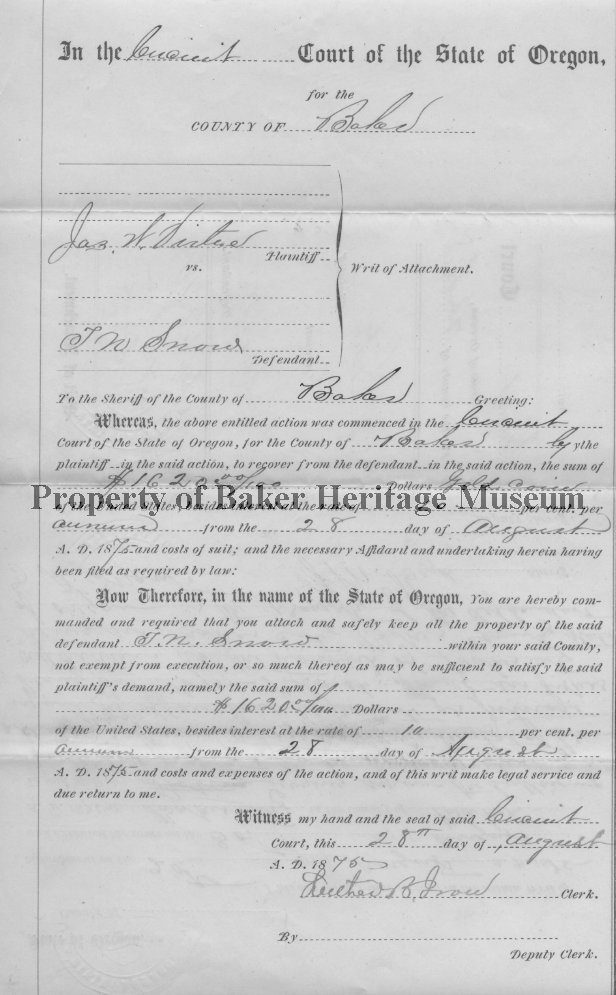 In the Circuit Court of the State of Oregon,
for the
COUNTY OF Baker
Jas. W. Virtue
Plaintiff
vs.
Writ of Attachment.
T N Snow
Defendant
To the Sheriff of the County of Baker Greeting:
Whereas, the above entitled action was commenced in the Circuit
Court of the State of Oregon, for the County of Baker by the
plaintiff in the said action, to recover from the defendant in the said action, the sum of
$1620 00/100 Dollars Gold Coin
Property of Baker Heritage Museum
of the United States, besides interest at the rate of per cent. per
annum from the 28 day of August
A. D. 1875 and costs of suit; and the necessary Affidavit and undertaking herein having
been filed as required by law:
Now Therefore, in the name of the State of Oregon, You are hereby com-
manded and required that you attach and safely keep all the property of the said
defendant T. N. Snow within your said County,
not exempt from execution, or so much thereof as may be sufficient to satisfy the said
plaintiff's demand, namely the said sum of
$1620 00/100 Dollars
of the United States, besides interest at the rate of 10 per cent. per
annum from the 28 day of August
A. D. 1875 and costs and expenses of the action, and of this writ make legal service and
due return to me.
Witness my hand and the seal of said Circuit
Court, this 28th day of August
A. D. 1875
Luther B. Ison Clerk.
By
Deputy Clerk.